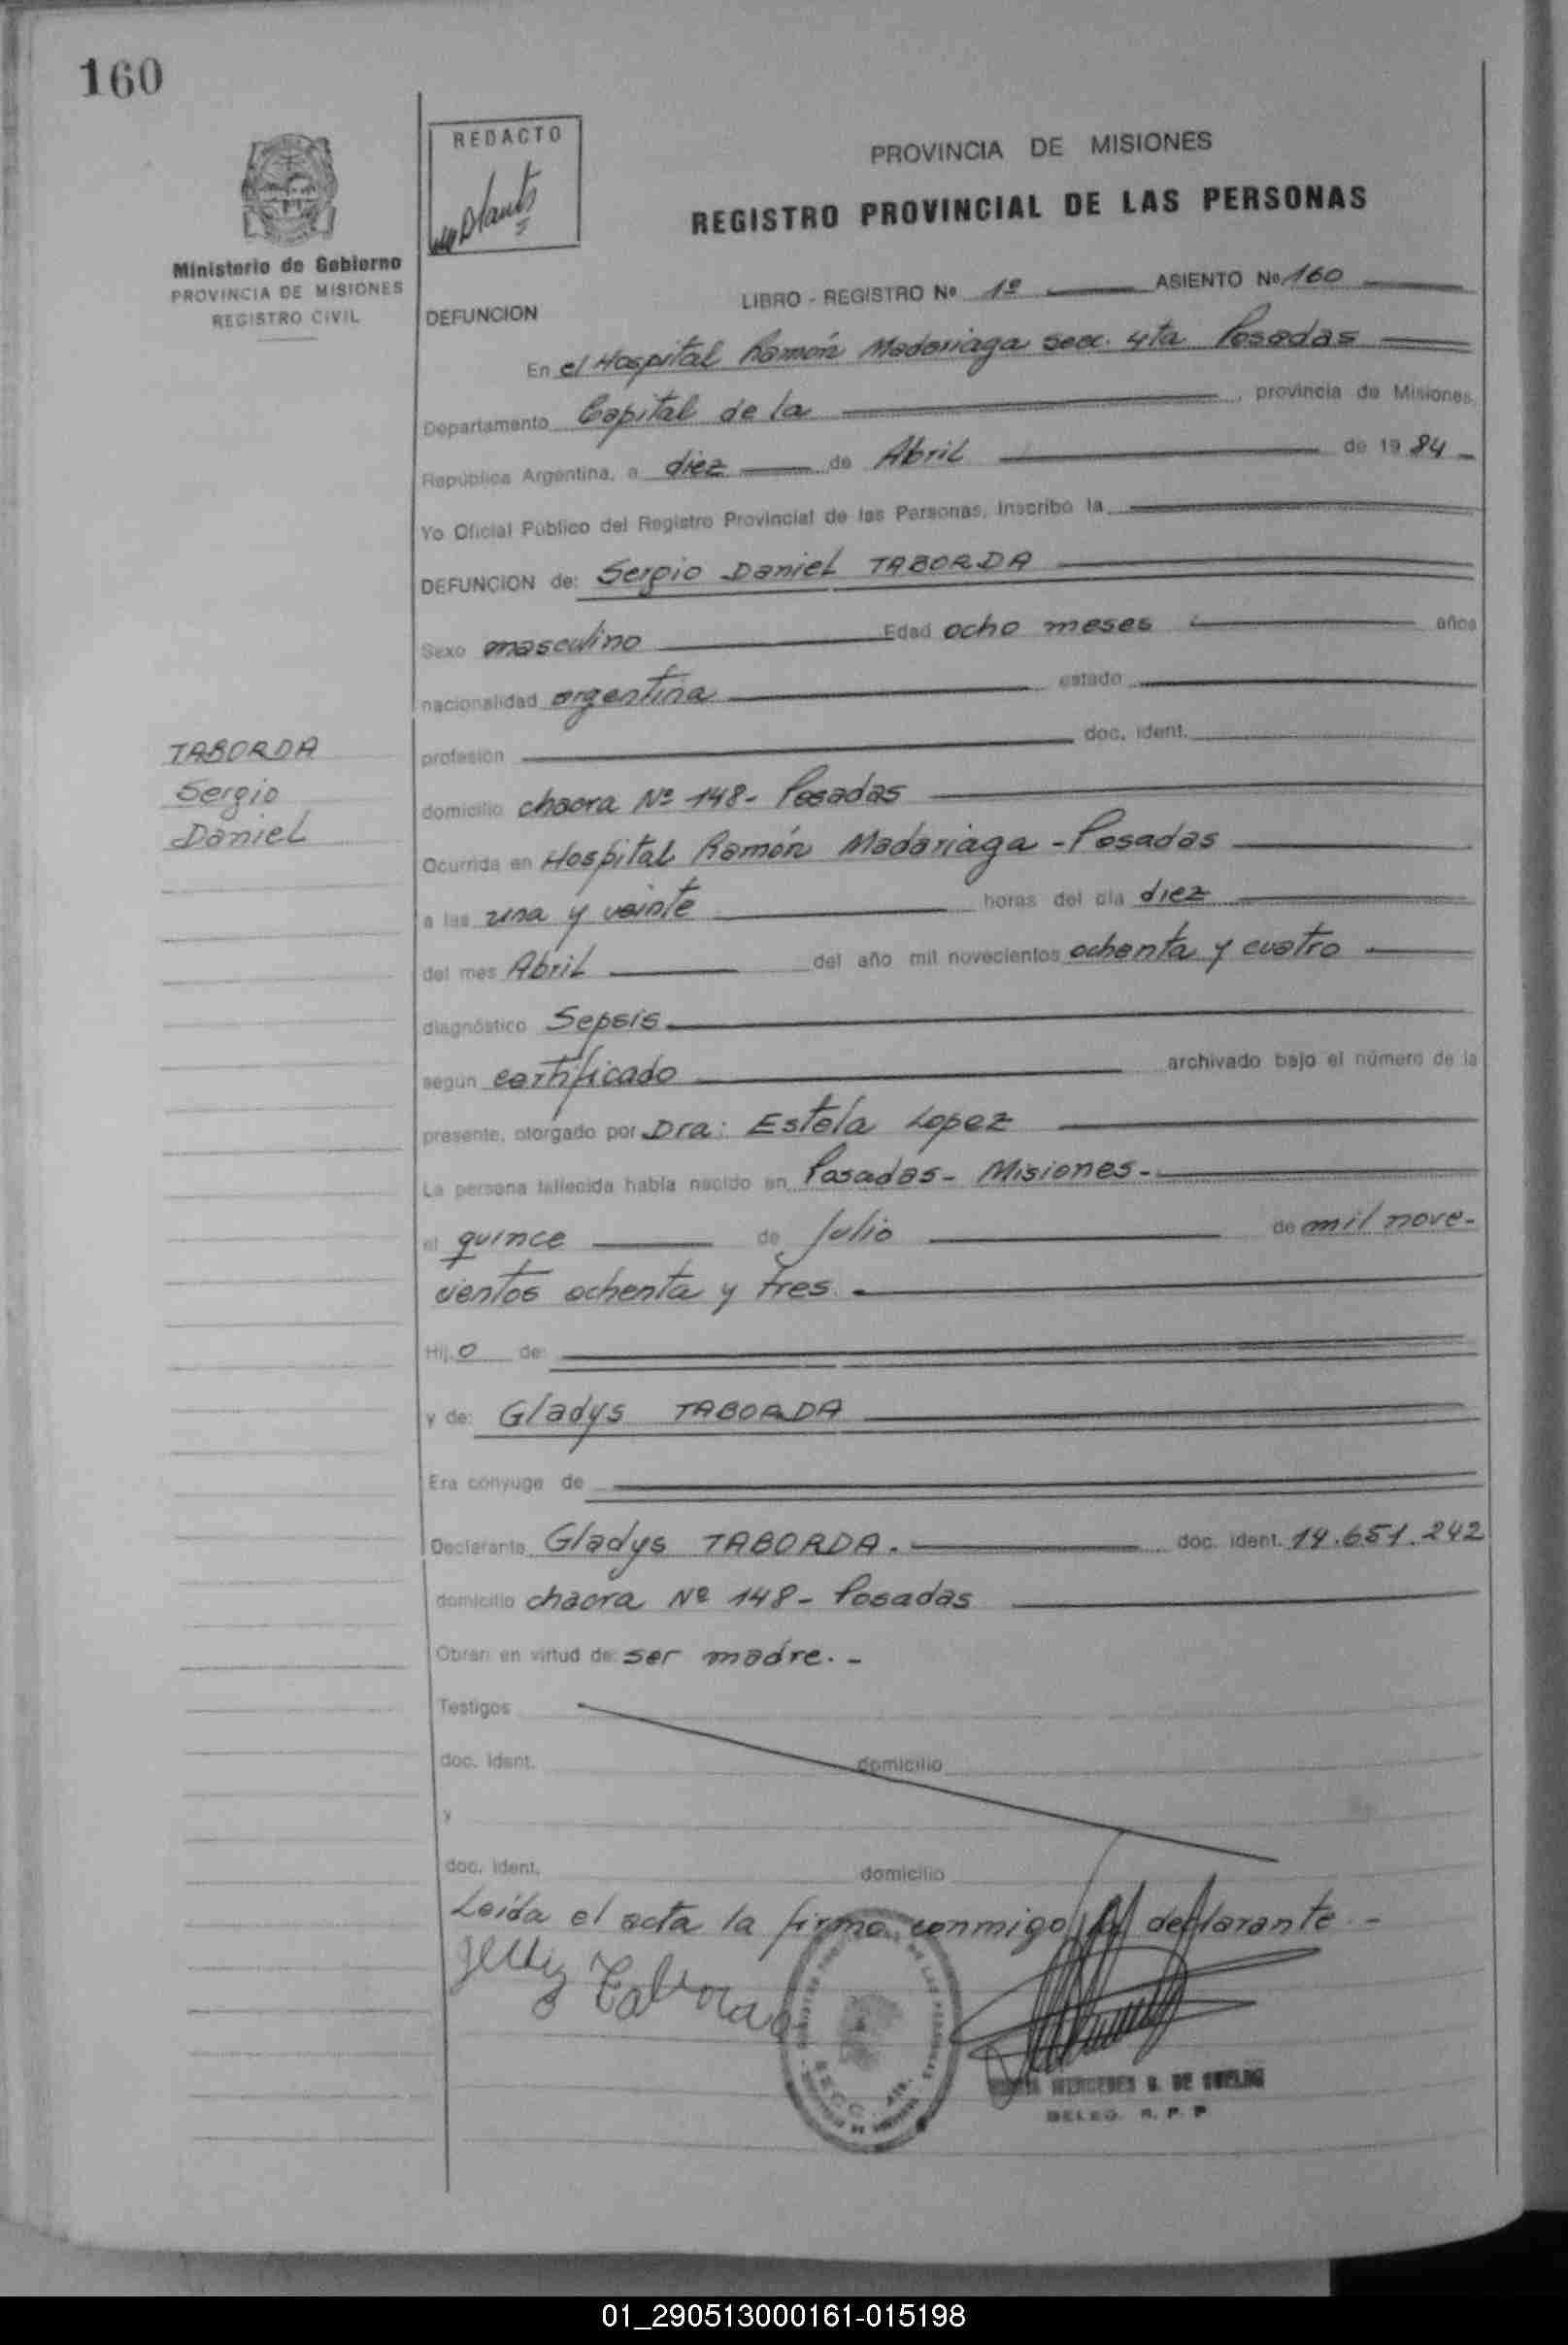 160
REDACTO
PROVINCIA DE MISIONES
REGISTRO PROVINCIAL DE LAS PERSONAS
Ministerio de Gobierno
PROVINCIA DE MISIONES
REGISTRO CIVIL
LIBRO - REGISTRO Nº 1º ASIENTO Nº 160
DEFUNCION
En el Hospital Ramón Madariaga secc. 4ta Posadas
Departamento Capital de la , provincia de Misiones,
República Argentina, a diez de Abril de 1984
Yo Oficial Público del Registro Provincial de las Personas, inscribo la
DEFUNCION de: Sergio Daniel TABORDA
Sexo masculino Edad ocho meses años
nacionalidad argentina estado
TABORDA
Sergio
Daniel
profesión doc. ident.
domicilio chacra Nº 148- Posadas
Ocurrida en Hospital Ramón Madariaga - Posadas
a las una y veinte horas del día diez
del mes Abril del año mil novecientos ochenta y cuatro
diagnóstico Sepsis
según certificado archivado bajo el número de la
presente, otorgado por Dra: Estela Lopez
La persona fallecida había nacido en Posadas- Misiones-
el quince de Julio de mil nove-
cientos ochenta y tres.
Hijo de:
y de: Gladys TABORDA
Era conyuge de
Declarante Gladys TABORDA. doc. ident. 14.651.242
domicilio chacra Nº 148- Posadas
Obran en virtud de: ser madre. -
Testigos
doc. ident. domicilio
y
doc. ident. domicilio
Leída el acta la firma conmigo la declarante. -
MERCEDES G. DE
DELEG. R. P. P
01_290513000161-015198